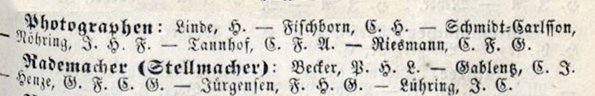 Photographen: Linde, H. — Fischborn, C. H. — Schmidt=Carlsson,
Nöhring, J. H. F. — Tannhof, C. F. A. — Riesmann, C. F. G.
Rademacher (Stellmacher): Becker, P. H. L. — Gablentz, C. J.
Henze, G. F. C. G. — Jürgensen, F. H. G. — Lühring, J. C.